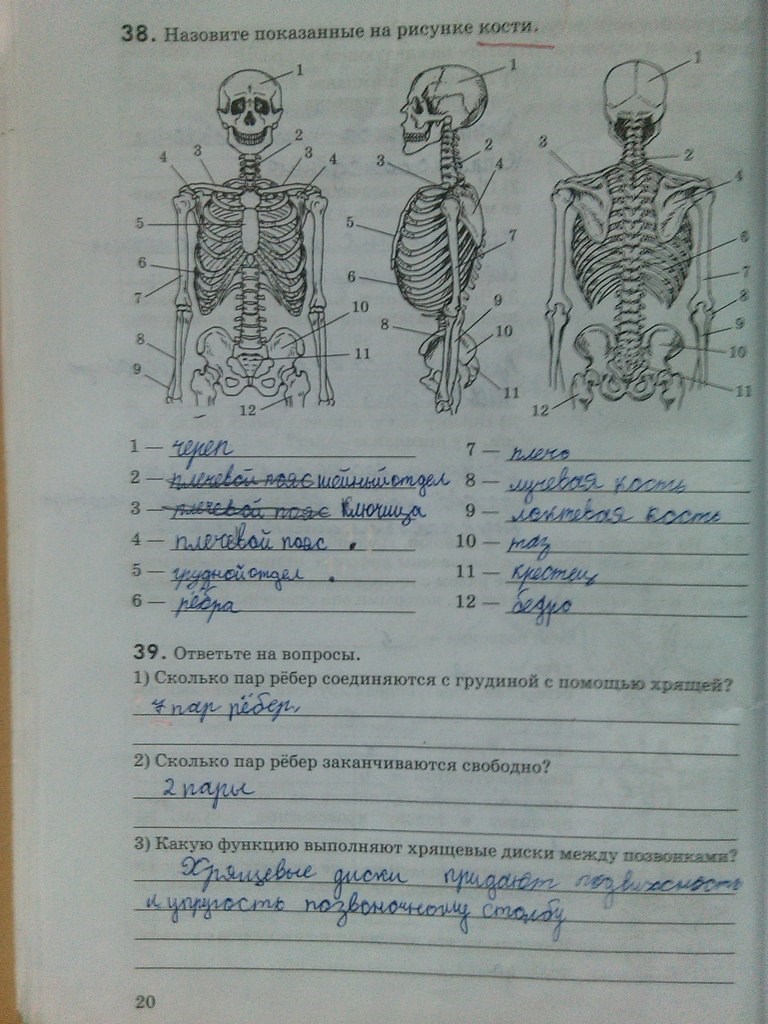 38. Назовите показанные на рисунке кости.
1 1 1
2 3 3 4 4 5 6 7 8 9 10 11 12
2 3 4 5 6 7 8 9 10 11
2 3 4 6 7 8 9 10 11 12
1 — череп
2 — плечевой пояс шейный отдел
3 — плечевой пояс ключица
4 — плечевой пояс .
5 — грудной отдел .
6 — рёбра
7 — плечо
8 — лучевая кость
9 — локтевая кость
10 — таз
11 — крестец
12 — бедро
39. Ответьте на вопросы.
1) Сколько пар рёбер соединяются с грудиной с помощью хрящей?
7 пар рёбер.
2) Сколько пар рёбер заканчиваются свободно?
2 пары
3) Какую функцию выполняют хрящевые диски между позвонками?
Хрящевые диски придают подвижность
и упругость позвоночному столбу
20